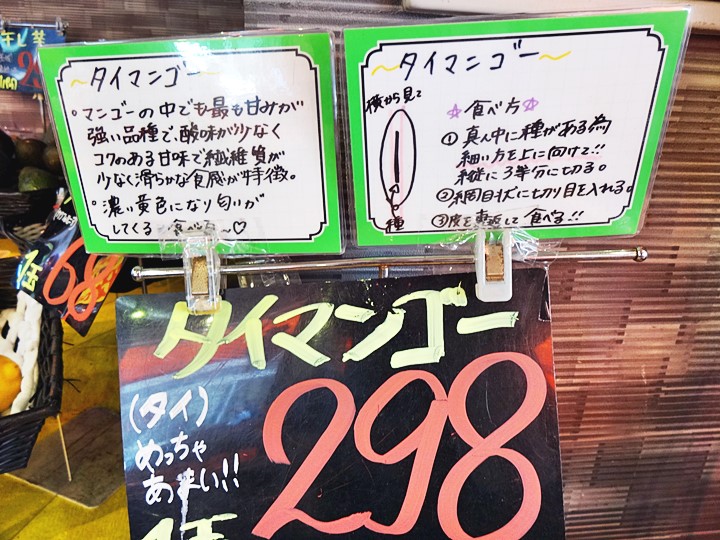 ～タイマンゴー～
・マンゴーの中でも最も甘みが
強い品種で、酸味が少なく
コクのある甘味で繊維質が
少なく滑らかな食感が特徴。
・濃い黄色になり匂いが
してくると食べ
～タイマンゴー～
横から見て
種
☆食べ方☆
①真ん中に種がある為
細い方を上に向けて!!
縦に3等分に切る。
②網目状に切り目を入れる。
③皮を裏返して食べる!!
タイマンゴー
(タイ)
めっちゃ
あまい!!
298
1玉
1玉
68